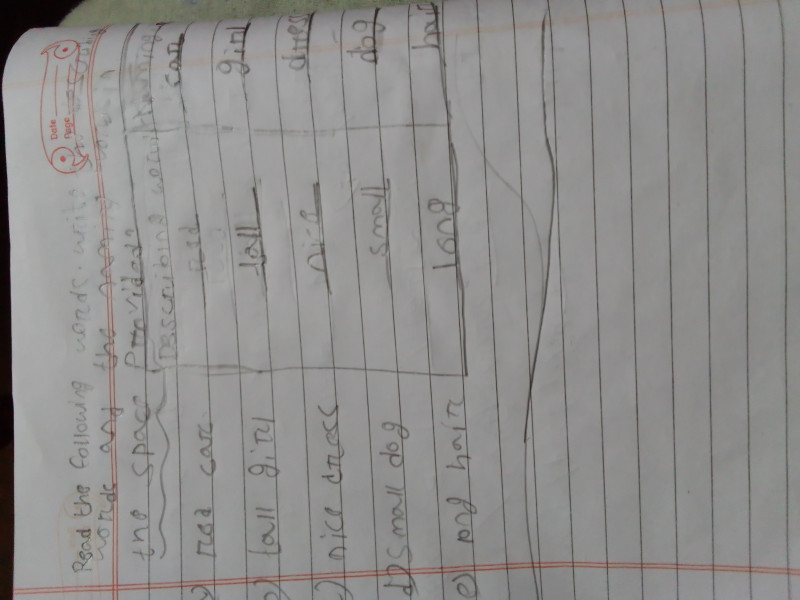 Date
Page
Read the following words. write
words and the naming words in
the space Provided?
Describing word naming
a) red car red car
b) tall girl tall girl
c) nice dress nice dres
d) small dog small dog
e) long hair long hair